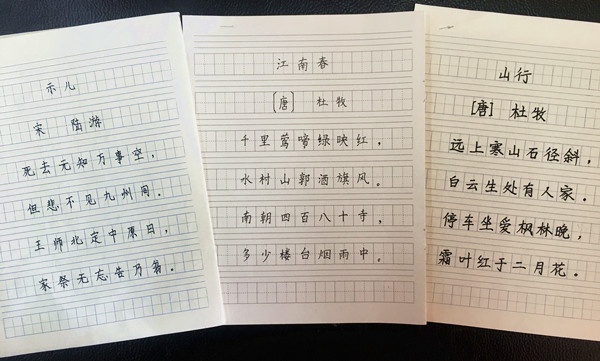 示儿
宋 陆游
死去元知万事空，
但悲不见九州同。
王师北定中原日，
家祭无忘告乃翁。
江南春
［唐］ 杜牧
千里莺啼绿映红，
水村山郭酒旗风。
南朝四百八十寺，
多少楼台烟雨中。
山行
［唐］ 杜牧
远上寒山石径斜，
白云生处有人家．
停车坐爱枫林晚，
霜叶红于二月花．